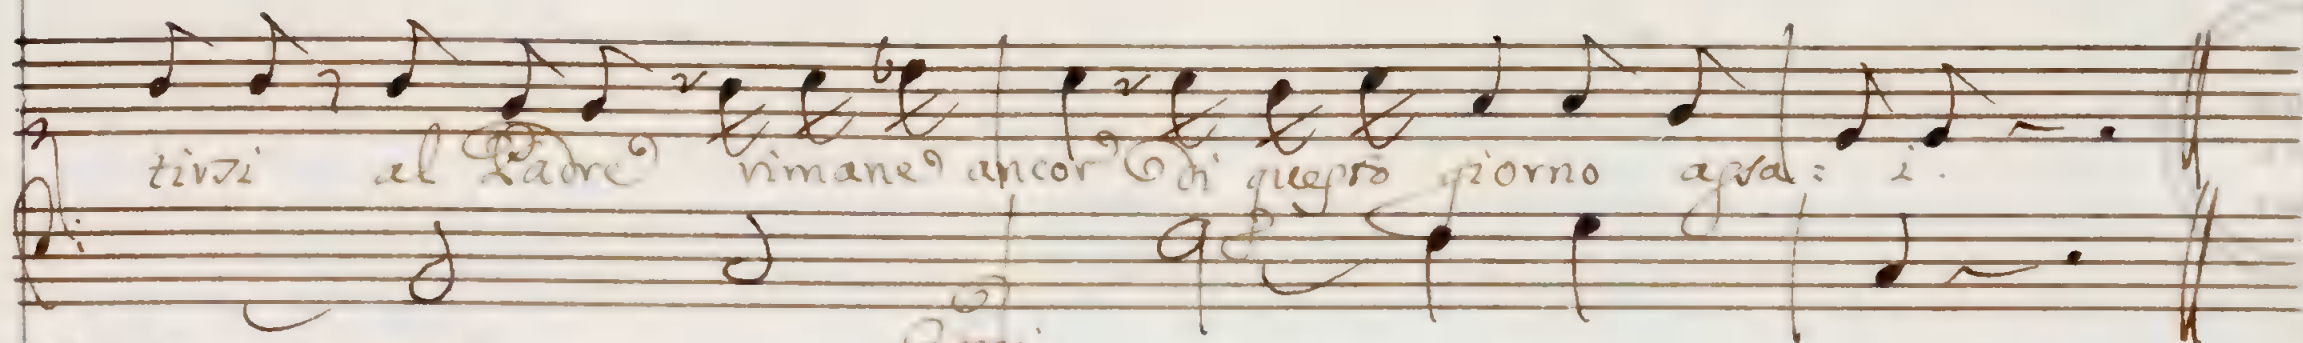 tirsi al Padre rimane ancor di questo giorno assa: i.